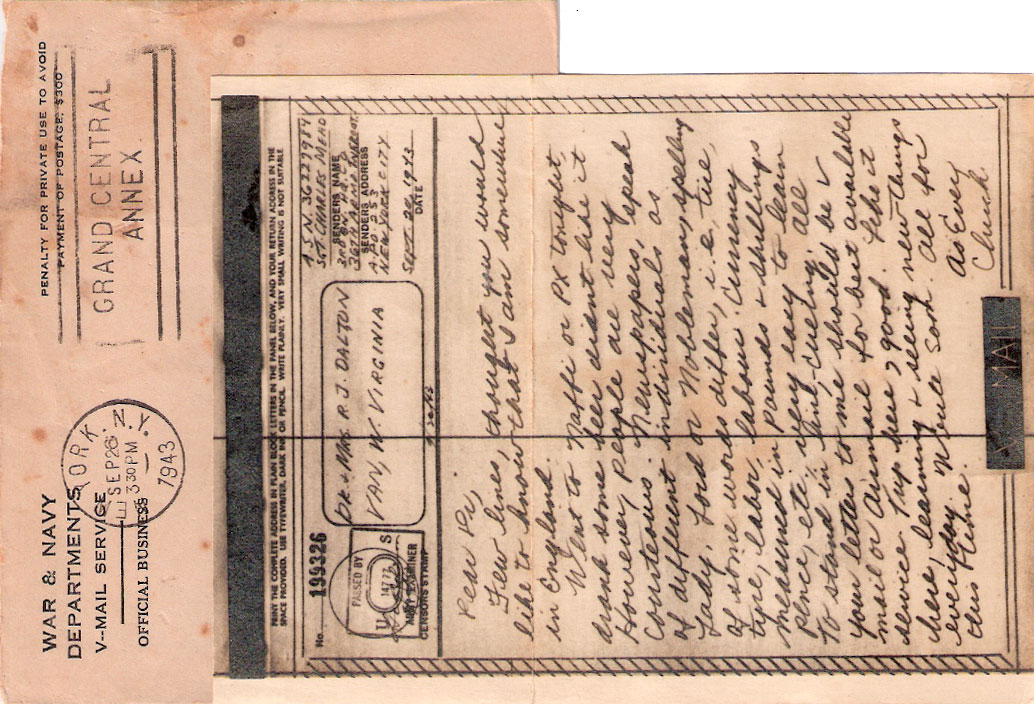 WAR & NAVY
DEPARTMENTS
V-MAIL SERVICE
OFFICIAL BUSINESS
YORK, N.Y.
SEP 26
3 30 PM
1943
GRAND CENTRAL
ANNEX
PENALTY FOR PRIVATE USE TO AVOID
PAYMENT OF POSTAGE, $300
PRINT THE COMPLETE ADDRESS IN PLAIN BLOCK LETTERS IN THE PANEL BELOW, AND YOUR RETURN ADDRESS IN THE
SPACE PROVIDED. USE TYPEWRITER, DARK INK OR PENCIL. WRITE PLAINLY. VERY SMALL WRITING IS NOT SUITABLE.
No. 199326
PASSED BY
U S
ARMY EXAMINER
CENSORS STAMP
DR & MRS. R. J. DALTON
VAN, W. VIRGINIA
A.S.N. 36227984
SGT. CHARLES MEAD
SENDERS NAME
36TH ARMD INF REGT.
SENDERS ADDRESS
A.P.O. 253
NEW YORK CITY
SEPT. 20, 1943
DATE
Dear Pi,
Few lines, thought you would
like to know that I am somewhere
in England.
Went to Naffi or PX tonight,
drank some beer didnt like it
However people are very
courteous. Newspapers, speak
of different individuals as
Lady, Lord or Nobleman, spelling
of some words differ, i.e, tire,
tyre, labor, labour. Currency
measured in pounds & shillings
pence, etc. very easy to learn
To stand in line, queing, all
your letters to me should be V
mail or airmail for best available
service. Trip here, good. Like it
here, learning & seeing new things
everyday. Write soon. All for
this time. As Ever
Chuck.
MAIL